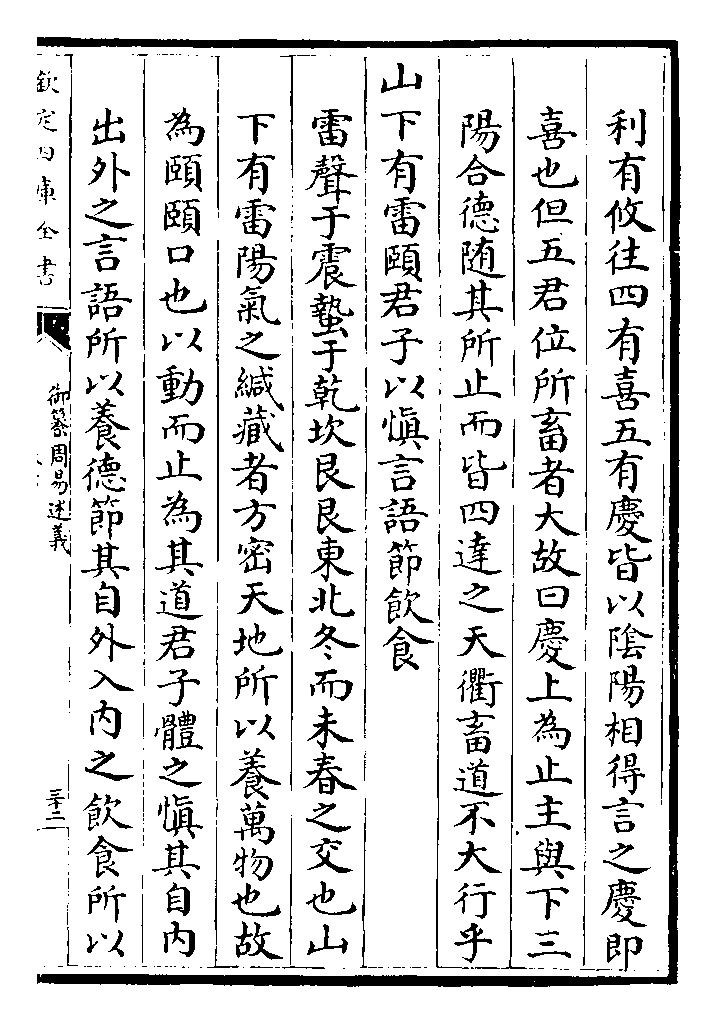 利有攸往四有喜五有慶皆以陰陽相得言之慶即
喜也但五君位所畜者大故曰慶上為止主與下三
陽合德随其所止而皆四達之天衢畜道不大行乎
山下有雷頤君子以慎言語節飲食
雷聲于震蟄于乾坎艮艮東北冬而未春之交也山
下有雷陽氣之緘藏者方密天地所以養萬物也故
為頤頤口也以動而止為其道君子體之慎其自内
出外之言語所以養德節其自外入内之飲食所以
欽定四庫全書
御纂周易述義
三十二